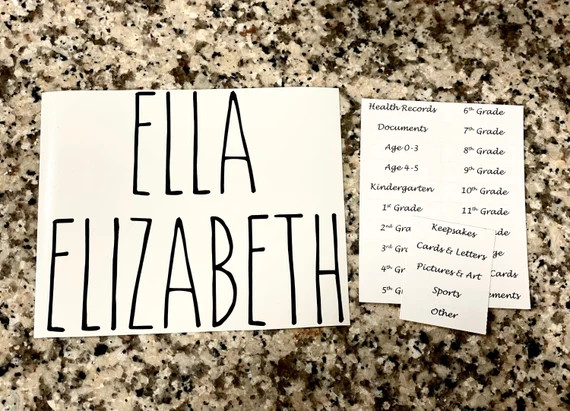 ELLA
ELIZABETH
Health Records
Documents
Age 0-3
Age 4-5
Kindergarten
1st Grade
2nd Gra
3rd Gr
4th Gr
5th G
6th Grade
7th Grade
8th Grade
9th Grade
10th Grade
11th Grade
Cards
ements
Keepsakes
Cards & Letters
Pictures & Art
Sports
Other